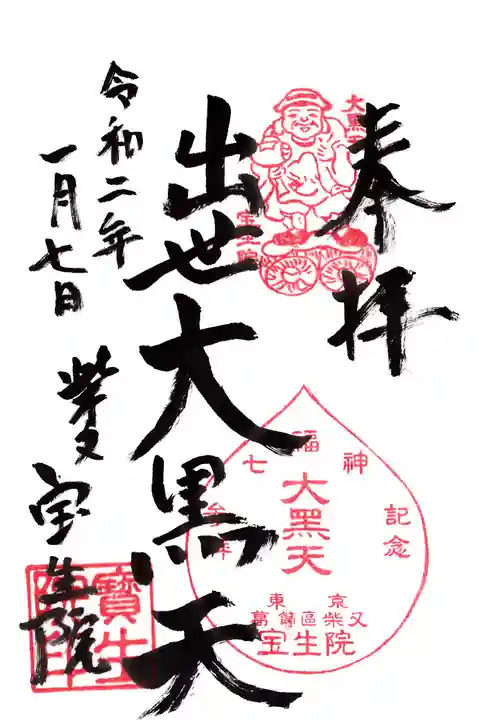 奉拝
大黒天
宝生院
出世大黒天
令和二年
一月七日
柴又
宝生院
七福神
参拝
記念
大黑天
東京
葛飾區柴又
宝生院
寶生
院印